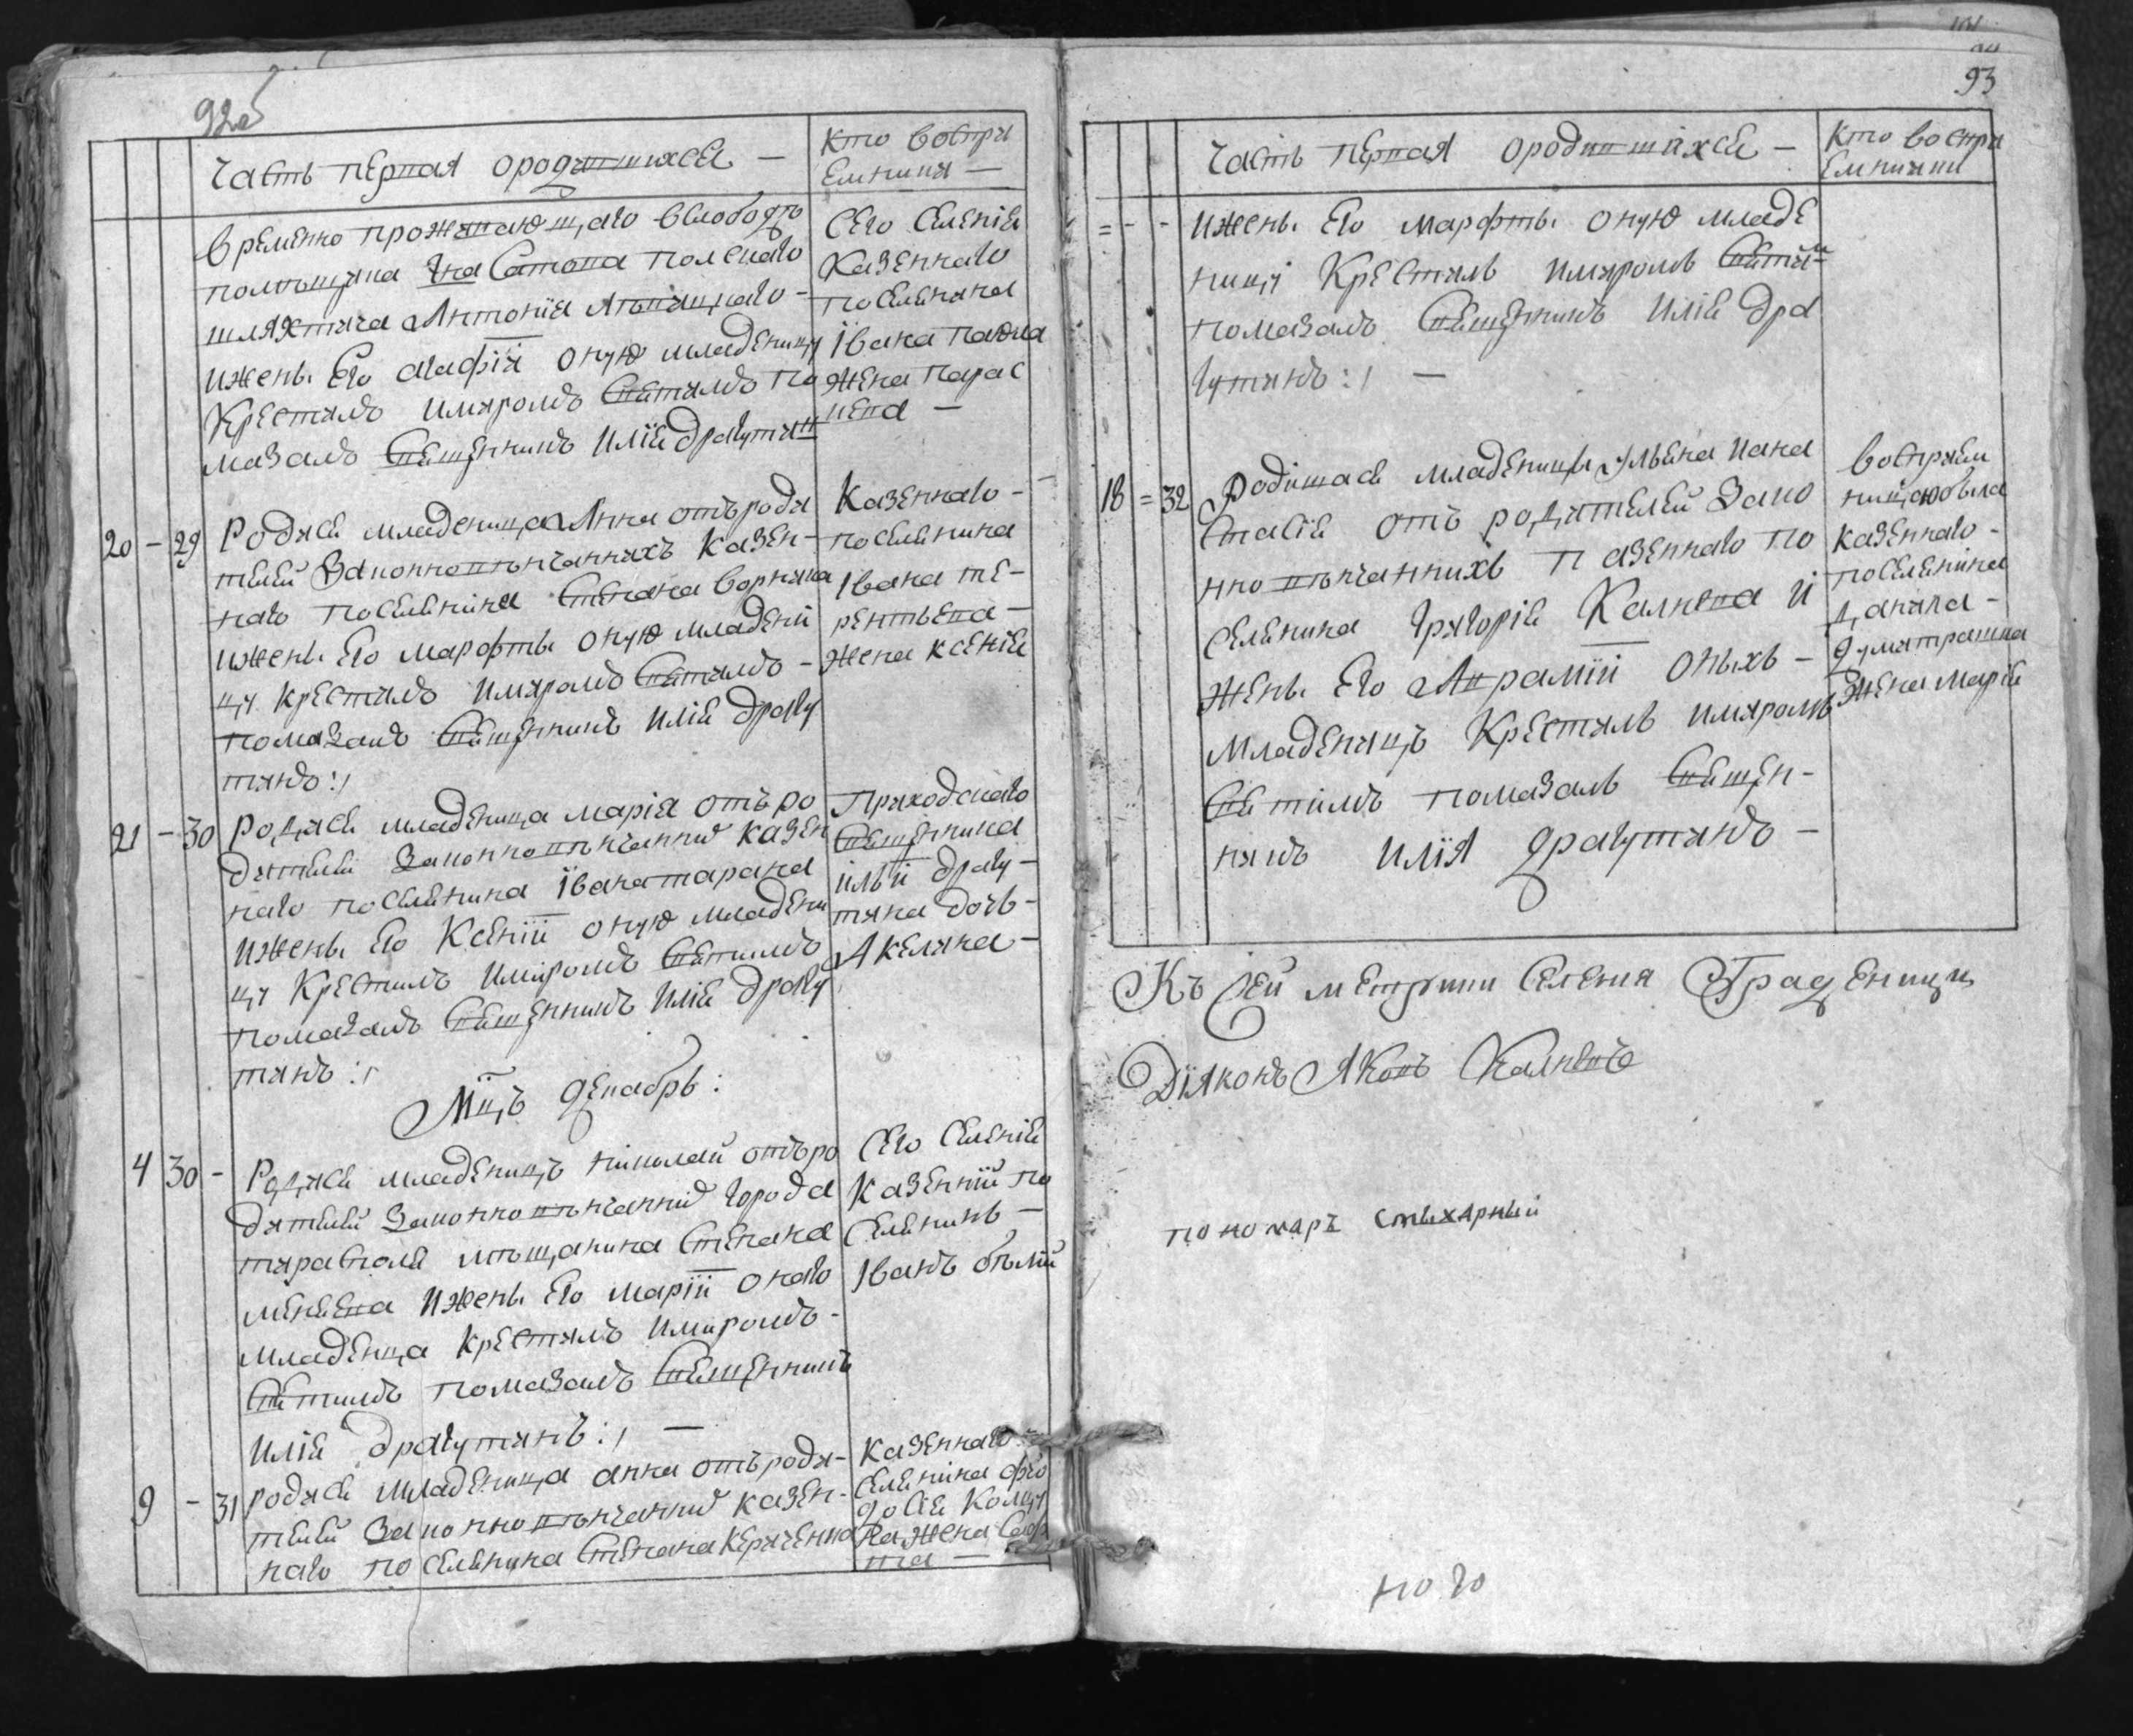 92об
Часть первая о родившихся —
Кто воспри
емники —
временно проживающаго вслободѣ
помѣщика полскаго
шляхтича Антонія
ижены его Агафіи оную младеницу
крестилъ имиромъ святимъ по
мазалъ священникъ Иліе Драгутин
Сего Селеніе
Казеннаго
поселенина
Івана Павла
жена Парас
кева —
20 - 29 Родися младеница Анна отъ роди
телей законновѣнчаннихъ казен-
наго поселенина Степана
ижены его Марофты оную младени
цу крестилъ имиромъ святимъ -
помазалъ священникъ Иліе Драгу
тинъ :/
Казеннаго -
поселенина
Івана те-
рентьева -
жена ксеніе
21 - 30 Родися младеница Марія отъ ро
дителей законновѣнчанних казен
наго поселенина Івана тарана
ижены его Ксеніи оную младени
цу крестилъ имиромъ святимъ
помазалъ священникъ Иліе Драгу
тинъ :/
Приходскаго
священника
Ильи Драгу-
тина дочь -
Акелина -
Мцъ декабрь :
4 30 - Родися младеницъ николай отъ ро
дителей законновѣнчанних города
тирасполе мѣщанина Степана
ижены его Маріи онаго
младенца крестилъ имиромъ -
святимъ помазалъ священникъ
Иліе Драгутинъ :/ —
Сего Селеніе
казенній по
селенинъ —
Іванъ бѣлій
9 - 31 родися младеница анна отъ роди-
телей законновѣнчанних казен-
наго поселенина Степана
Казеннаго
селенина фео
досіе
жена
93
Часть первая о родившихся —
Кто воспри
емники
= - - ижены его Марофты оную младе
ницу крестилъ имиромъ святим
помазалъ священникъ Иліе Дра
гутинъ :/ —
18 = 32 Родишасе младеници Ульяна иана
стасіе отъ родителей зако
нновѣнчаннихъ казеннаго по
селенина Григоріе Калнева и
жены его оныхъ -
младеницъ крестилъ имиромъ
святимъ помазалъ священ-
никъ Илія Драгутинъ —
восприем
ницею была
казеннаго -
поселенина
данила -
думитрашка
жена Маріе
Къ сей метрики селения Граденици
Діяконъ Яковъ Калневъ
пономаръ стихарный